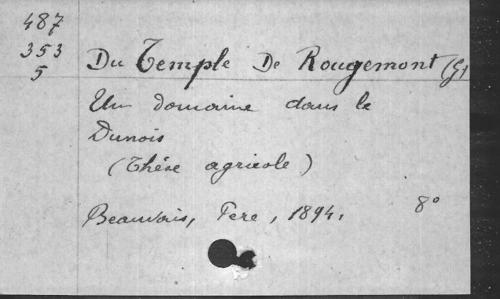 487
353
5
Du Temple De Rougemont (G)
Un domaine dans le
Dunois
(Thése agricole)
Beauvais, Pere, 1894. 8°